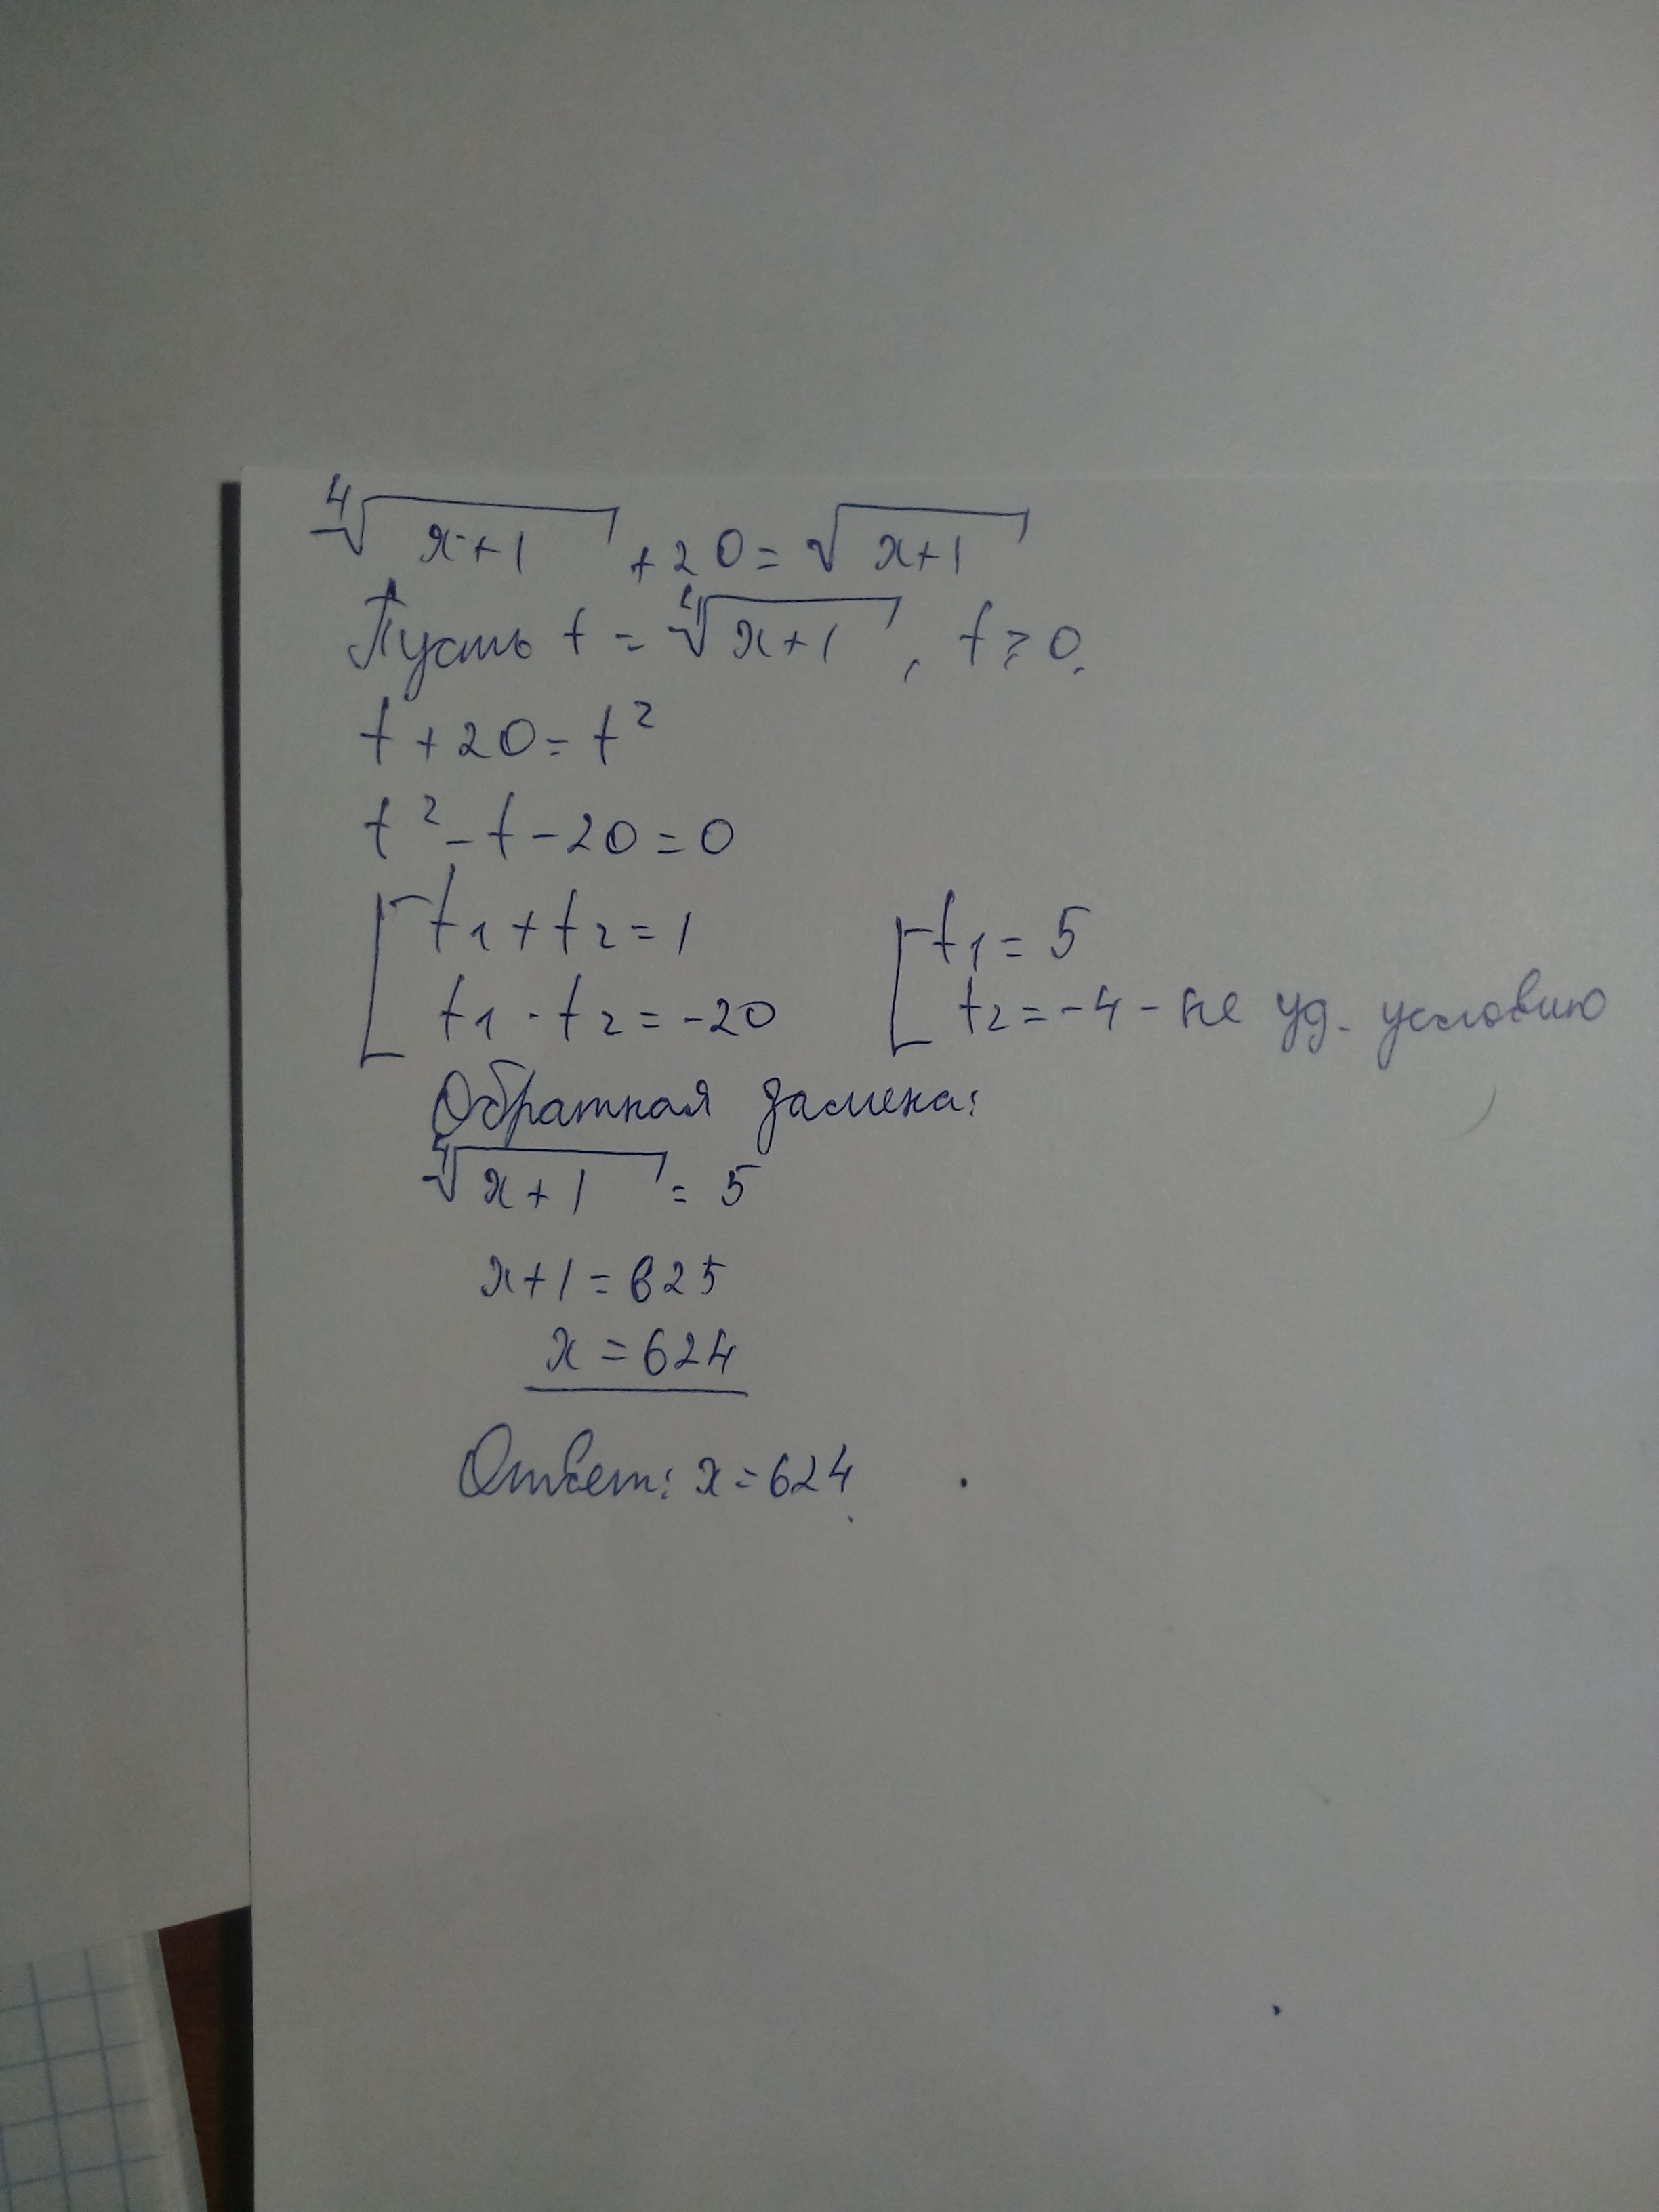 ⁴√(x+1) + 20 = √(x+1)
Пусть t = ⁴√(x+1), t ≥ 0.
t + 20 = t²
t² - t - 20 = 0
[ t₁ + t₂ = 1 [ t₁ = 5
t₁ · t₂ = -20 t₂ = -4 - не уд. условию
Обратная замена:
⁴√(x+1) = 5
x+1 = 625
x = 624
Ответ: x = 624.